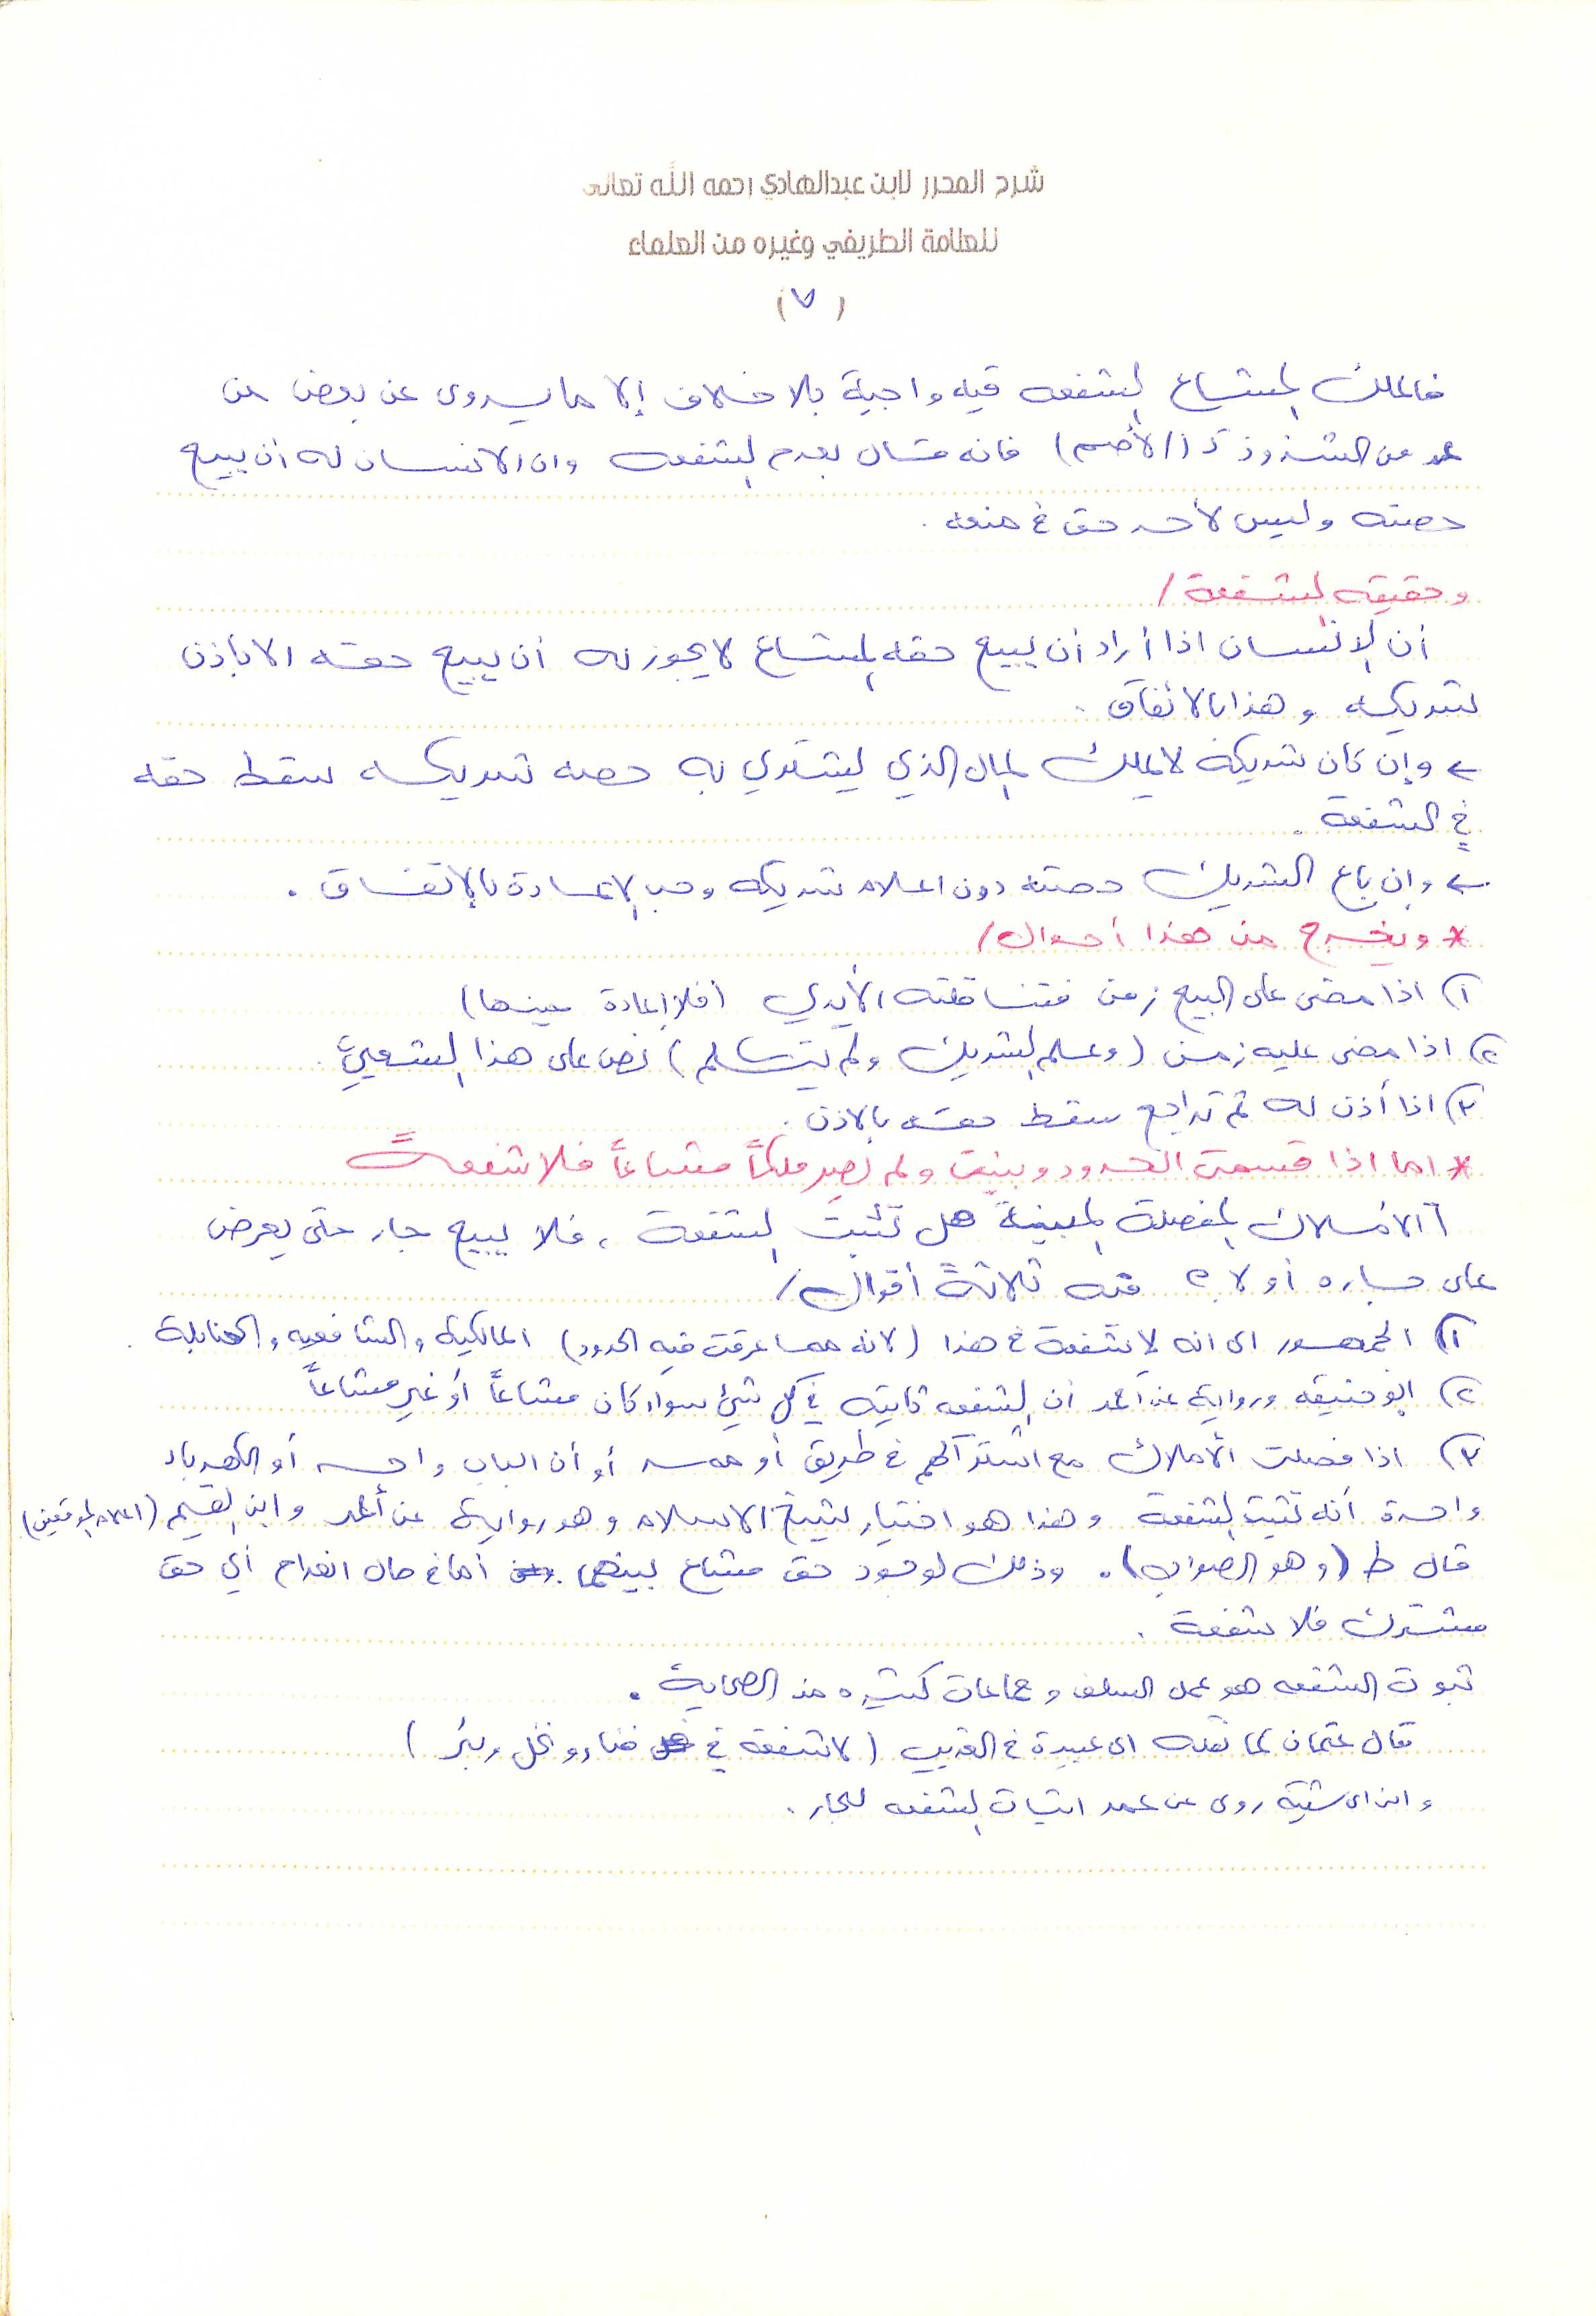 شرح المحرر لابن عبدالهادي رحمه الله تعالى
للعلامة الطريفي وغيره من العلماء
(٧)
فالملك المشاع الشفعه فيه واجبة بلا خلاف إلا ما يروى عن بعض من
عد من الشذوذ كـ (الأصم) فانه قال بعدم الشفعه وان الانسان له أن يبيع
حصته وليس لأحد حق في منعه .
وحقيقه الشفعة /
أن الإنسان اذا أراد أن يبيع حقه المشاع لا يجوز له أن يبيع حقه الا بإذن
شريكه وهذا بالاتفاق .
← وإن كان شريكه لا يملك المال الذي ليشتري به حصه شريكه سقط حقه
في الشفعة .
← وإن باع الشريك حصته دون اعلام شريكه وجب الإعادة بالإتفاق .
* ويخرج من هذا أحوال /
١) اذا مضى على البيع زمن فتناقلته الأيدي (فلا إعادة حينها)
٢) اذا مضى عليه زمن (وعلم الشريك ولم يتكلم) نص على هذا الشعبي .
٣) اذا أذن له ثم تراجع سقط حقه بالاذن .
* اما اذا قسمت الحدود وبينت ولم تصير ملكاً مشاعاً فلا شفعةً
أ الأملاك المفصلة المبينة هل تثبت الشفعة ، فلا يبيع جار حتى يعرض
على جاره أو لا ؟ فيه ثلاثة أقوال /
١) الجمهور الى انه لا شفعة في هذا (لانه مما عرفت فيه الحدود) المالكية والشافعيه والحنابلة .
٢) ابو حنيفه ورواية عن أحمد أن الشفعه ثابته في كل شيء سواء كان مشاعاً أو غير مشاعاً
٣) اذا فصلت الأملاك مع اشتراكهم في طريق أو ممر أو أن الباب واحد أو الكهرباء
واحدة أنه تثبت الشفعة وهذا هو اختيار شيخ الاسلام وهو رواية عن أحمد وابن القيم (اعلام الموقعين)
قال ط (وهو الصواب) . وذلك لوجود حق مشاع بينهما أما في حال انعدام أي حق
مشترك فلا شفعة .
ثبوت الشفعه هو عمل السلف وجماعات كثيره من الصحابة .
قال عثمان كما نقله ابي عبيدة في الغريب (لا شفعة في فناء ونخل وبئر)
وابن ابي شيبه روى عن عمر اثبات الشفعه للجار .